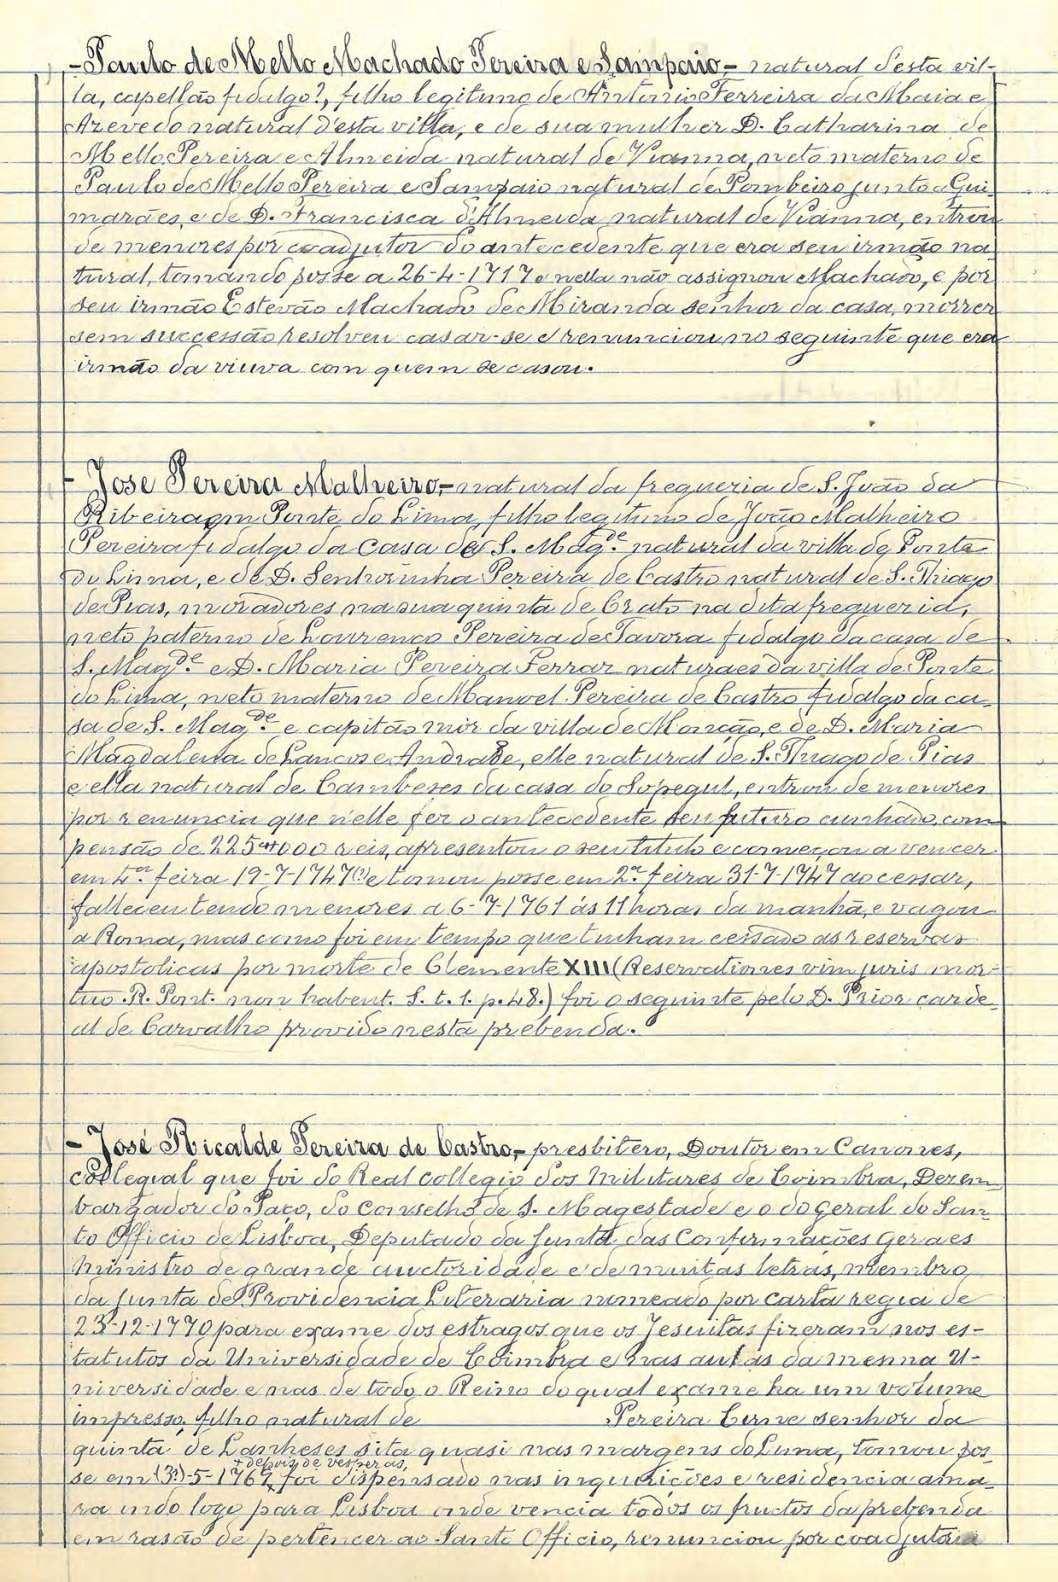 - Paulo de Mello Machado Pereira e Sampaio, - natural d'esta vil-
la, capellão fidalgo?, filho legitimo de Antonio Ferreira da Maia e
Azevedo natural d'esta villa, e de sua mulher D. Catharina de
Mello Pereira e Almeida natural de Vianna, neto materno de
Paulo de Mello Pereira e Sampaio natural de Pombeiro junto a Gui-
marães, e de D. Francisca d'Almeida natural de Vianna, entrou
de menores por coadjutor do antecedente que era seu irmão na
tural, tomando posse a 26-4-1717 e nella não assignou Machado, e por
seu irmão Estevão Machado de Miranda senhor da casa, morrer
sem successão resolveu casar-se e renunciou no seguinte que era
irmão da viuva com quem se casou.
- Jose Pereira Malheiro, - natural da fregueria de S. João da
Ribeira em Ponte do Lima, filho legitimo de João Malheiro
Pereira fidalgo da casa de S. Mag.de natural da villa de Ponte
do Lima, e de D. Senhorinha Pereira de Castro natural de S. Thiago
de Pias, moradores na sua quinta de Crato na dita freguezia,
neto paterno de Lourenço Pereira de Tavora fidalgo da casa de
S. Mag.de e D. Maria Pereira Ferraz naturaes da villa de Ponte
do Lima, neto materno de Manoel Pereira de Castro fidalgo da ca-
sa de S. Mag.de e capitão mór da villa de Monção, e de D. Maria
Magdalena de Lancos e Andrade, elle natural de S. Thiago de Pias
e ella natural de Cambeses da casa do Sopegul, entrou de menores
por renuncia que n'elle fez o antecedente seu futuro cunhado, com
pensão de 225$000 reis, apresentou o seu titulo e começou a vencer
em 4.ª feira 19-7-1747(?) e tomou posse em 2.ª feira 31-7-1747 ao cessar,
falleceu tendo menores a 6-7-1761 ás 11 horas da manhã, e vagou
a Roma, mas como foi em tempo que tinham cessado as reservas
apostolicas por morte de Clemente XIII (Reservationes vim juris mor-
tuo R. Pont. non habent. S. t. 1. p. 48.) foi o seguinte pelo D. Prior carde-
al de Carvalho provido nesta prebenda.
- José Ricalde Pereira de Castro, - presbitero, Doutor em Canones,
collegial que foi do Real collegio dos Militares de Coimbra, Dezem-
bargador do Paço, do Conselho de S. Magestade e o do geral do San-
to Officio de Lisboa, Deputado da Junta das Confirmações Geraes
Ministro de grande auctoridade e de muitas letras, membro
da Junta de Providencia Literaria nomeado por carta regia de
23-12-1770 para exame dos estragos que os Jesuitas fizeram nos es-
tatutos da Universidade de Coimbra e nas aulas da mesma U-
niversidade e nas de todo o Reino do qual exame ha um volume
impresso, filho natural de Pereira Cirne senhor da
quinta de Lanheses sita quasi nas margens do Lima, tomou pos-
+ depois de vesperas,
se em (3ª)-5-1762 + foi dispensado nas inquirições e residencia ama-
ra indo logo para Lisboa onde vencia todos os fructos da prebenda
em rasão de pertencer ao Santo Officio, renunciou por coadjutoria